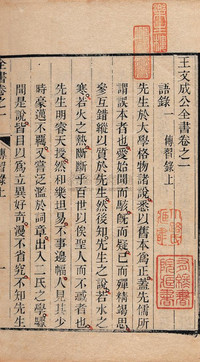 王文成公全書卷之一
語錄
傳習錄上
先生於大學格物諸說悉以舊本為正蓋先儒所
謂誤本者也愛始聞而駭既而疑已而殫精竭思
參互錯縱以質於先生然後知先生之說若水之
寒若火之熱斷斷乎百世以俟聖人而不惑者也
先生明睿天授然和樂坦易不事邊幅人見其少
時豪邁不羈又嘗泛濫於詞章出入二氏之學驟
聞是說皆目以為立異好奇漫不省究不知先生
全書卷之一
傳習錄上
一